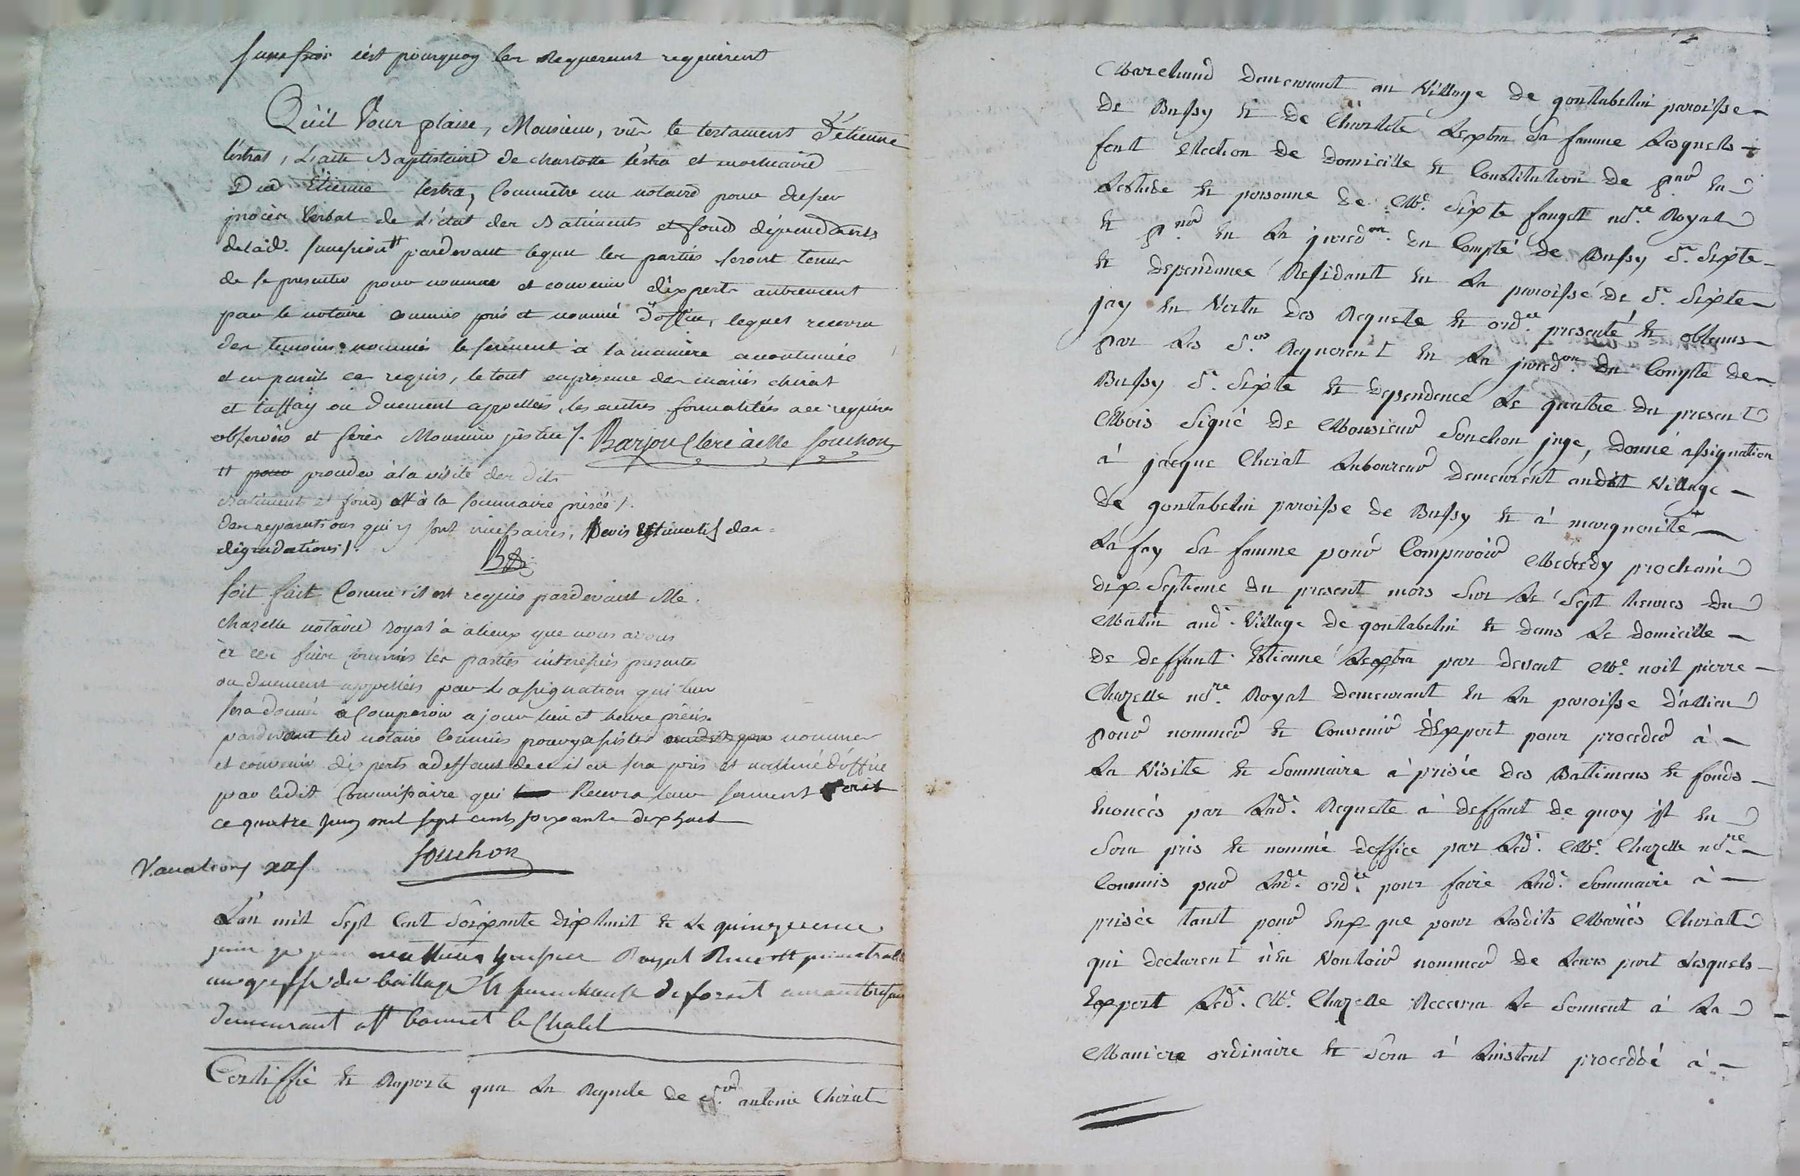 c'est pourquoy les Requerants requierent
Qu'il Vous plaise, Monsieur, vû le testament d'étienne
lestra, l'acte Baptistaire de charlotte léstra et mortuaire
Dud Étienne lestra, Commettre un notaire pour dresser
procès verbal de l'état des Batiments et fond dépendants
delad. pardevant lequel les parties seront tenus
de se presenter pour nommer et convenir d'experts autrement
par le notaire commis pris et nommé d'office, lequel recevra
des temoins nommés le serment à la manière accoutumée
et en pareil cas requis, le tout en présence des mariés chirat
et laffay ou duement appellés, les autres formalités a ce requises
observées et ferés Monsieur justice /. Barjou Clerc de Me Souchon
tt pour proceder à la visite des dits
batiment et fond, et à la sommaire prisée /.
des reparations qui y sont necessaires, Devis Estimatif des
dégradations /.
soit fait Comme il est requis pardevant Me
chazelle notaire royal à alieux que nous avons
à ces fins commis les parties interessées presentes
ou duement appellées par l'assignation qui leur
sera donné a Comparoir a jour lieu et heure précis
pardevant led notaire Commis pour y assister nommer
et convenir d'experts a deffaut de ce il en sera pris et nommé d'office
par ledit Commissaire qui Recevra leur serment
ce quatre juin mil sept cent soixante dix huit
Souchon
Vacations
L'an mil Sept Cent Soixante dix huit & Le quinzieme
juin je jean mathieu huissier Royal Reçu et immatriculé
au greffe du baillage de forest
demeurant a St bonnet le Chalel
Certiffie & Raporte qu'a La Requete de Sr antoine Chirat
Marchand demeurant au Village de gontabelin paroisse
de Bussy & de Charlote Lextra sa femme Lesquels
font election de domicille & Constitution de pnr En
Lestude & personne de Me Sixte fauget nore Royal
& pnr En La juridon du Compté de Bussy St Sixte
& dependance Residant En La paroisse de St Sixte
jay En Vertu des Requete & ordce presenté & obtenus
par Les Srs Requerent En La juridon du Compte de
Bussy St Sixte & dependence Le quatre du present
Mois Signé de Monsieur Souchon juge, donné assignation
à jacque Chirat Laboureur demeurent audit Village
de gontabelin paroisse de Bussy & à marguerite
Lafay Sa femme pour Comparoir Mecredy prochain
dix Septieme du present mois Sur Le Sept heures du
Matin aud. Village de gontabelin & dans Le domicille
de deffunt Etienne Lextra par devant Me noit pierre
Chazelle nore Royal demeurant En La paroisse d'allieu
pour nommer & Convenir d'Expert pour proceder à
La Visite & Sommaire à prisée des Battimens & fonds
Enoncés par Lade Requete à deffaut de quoy il En
Sera pris & nommé d'office par Led. Me Chazelle nore
Commis par Lade ordce pour faire Lade Sommaire à
prisée tant pour Eux que pour Lesdits Mariés Chirat
qui declarent n'En Vouloir nommer de Leurs part Lesquels
Expert Led. Me Chazelle Recevra Le Serment à La
Maniere ordinaire & Sera à Linstent procedé à